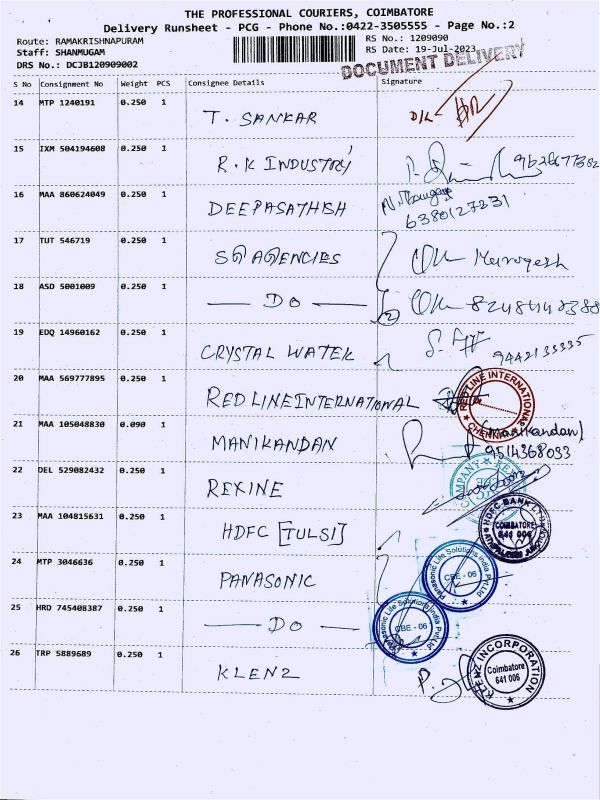 THE PROFESSIONAL COURIERS, COIMBATORE
Delivery Runsheet - PCG - Phone No.:0422-3505555 - Page No.:2
Route: RAMAKRISHNAPURAM RS No.: 1209090
Staff: SHANMUGAM RS Date: 19-Jul-2023
DRS No.: DCJB120909002
DOCUMENT DELIVERY
S No Consignment No Weight PCS Consignee Details Signature
14 MTP 1240191 0.250 1 T. SANKAR
15 IXM 504194608 0.250 1 R.K INDUSTRY
16 MAA 860624049 0.250 1 DEEPASATHISH
6380127231
17 TUT 546719 0.250 1 SG AGENCIES Murugesh
18 ASD 5001009 0.250 1 DO 2
19 EDQ 14960162 0.250 1 CRYSTAL WATER
9442133335
20 MAA 569777895 0.250 1 RED LINE INTERNATIONAL
RED LINE INTERNATIONAL
CHENNAI
21 MAA 105048830 0.090 1 MANIKANDAN (Manikandan)
9514368033
22 DEL 529082432 0.250 1 REXINE
COMPANY
23 MAA 104815631 0.250 1 HDFC [TULSI]
HDFC BANK LTD
COIMBATORE
641 006
24 MTP 3046636 0.250 1 PANASONIC
Panasonic Life Solutions India Pvt Ltd
CBE - 06
25 HRD 745408387 0.250 1 DO
Panasonic Life Solutions India Pvt Ltd
CBE - 06
26 TRP 5889689 0.250 1 KLENZ
KLENZ INCORPORATION
Coimbatore
641 006